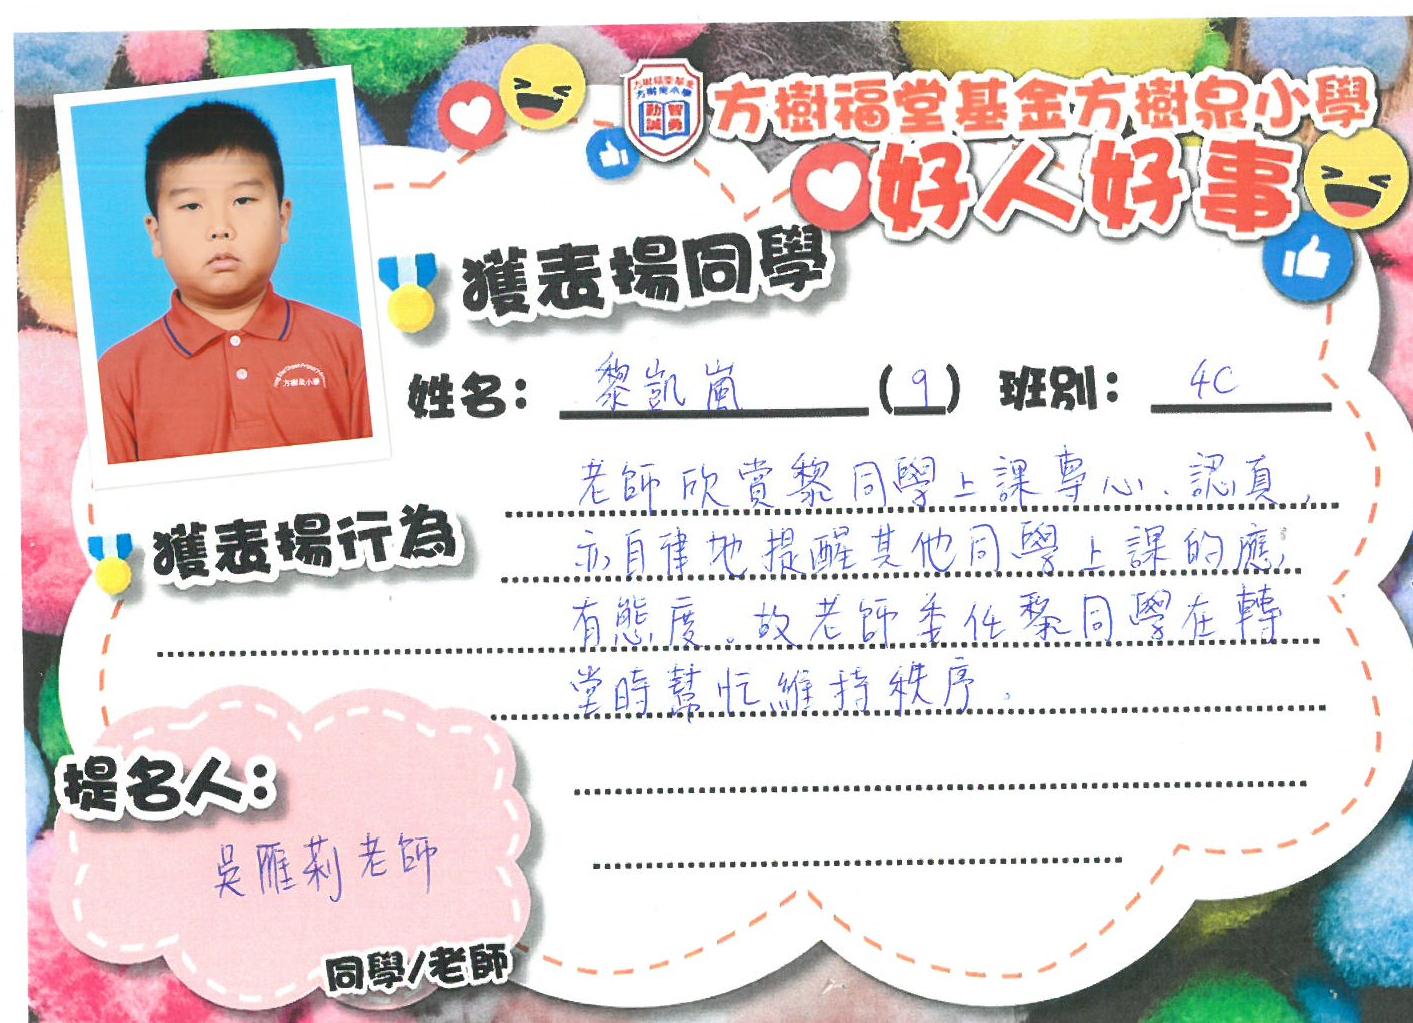 方樹福堂基金方樹泉小學
好人好事
獲表揚同學
姓名： 黎凱嵐 (9) 班別： 4C
獲表揚行為
老師欣賞黎同學上課專心、認真，
亦自律地提醒其他同學上課的應
有態度。故老師委任黎同學在轉
堂時幫忙維持秩序。
提名人：
吳雁莉老師
同學/老師
方樹福堂基金
方樹泉小學
勤智
誠勇
方樹泉小學